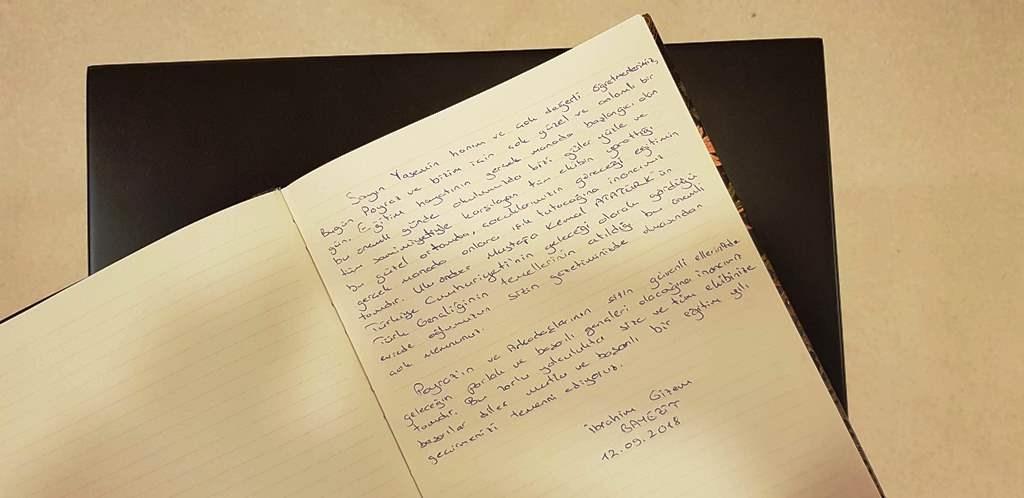 Sayın Yasemin hanım ve çok değerli öğretmenlerimiz,
Bugün Poyraz ve bizim için çok güzel ve anlamlı bir
gün. Eğitim hayatının gerçek manada başlangıcı olan
bu önemli günde okulumuzda bizi güler yüzle ve
tüm samimiyetiyle karşılayan tüm ekibin yarattığı
bu güzel ortamda, çocuklarımızın göreceği eğitimin
gerçek manada onlara ışık tutacağına inancımız
tamdır. Ulu önder Mustafa Kemal ATATÜRK'ün
Türkiye Cumhuriyeti'nin geleceği olarak gördüğü
Türk Gençliğinin temellerinin atıldığı bu önemli
evrede oğlumuzun sizin gözetiminizde olmasından
çok memnunuz.
Poyraz'ın ve Arkadaşlarının sizin güvenli ellerinizde
geleceğin parlak ve başarılı gençleri olacağına inancımız
tamdır. Bu zorlu yolculukta size ve tüm ekibinize
başarılar diler mutlu ve başarılı bir eğitim yılı
geçirmenizi temenni ediyoruz.
İbrahim Gizem
BAYEZİT
12.09.2018